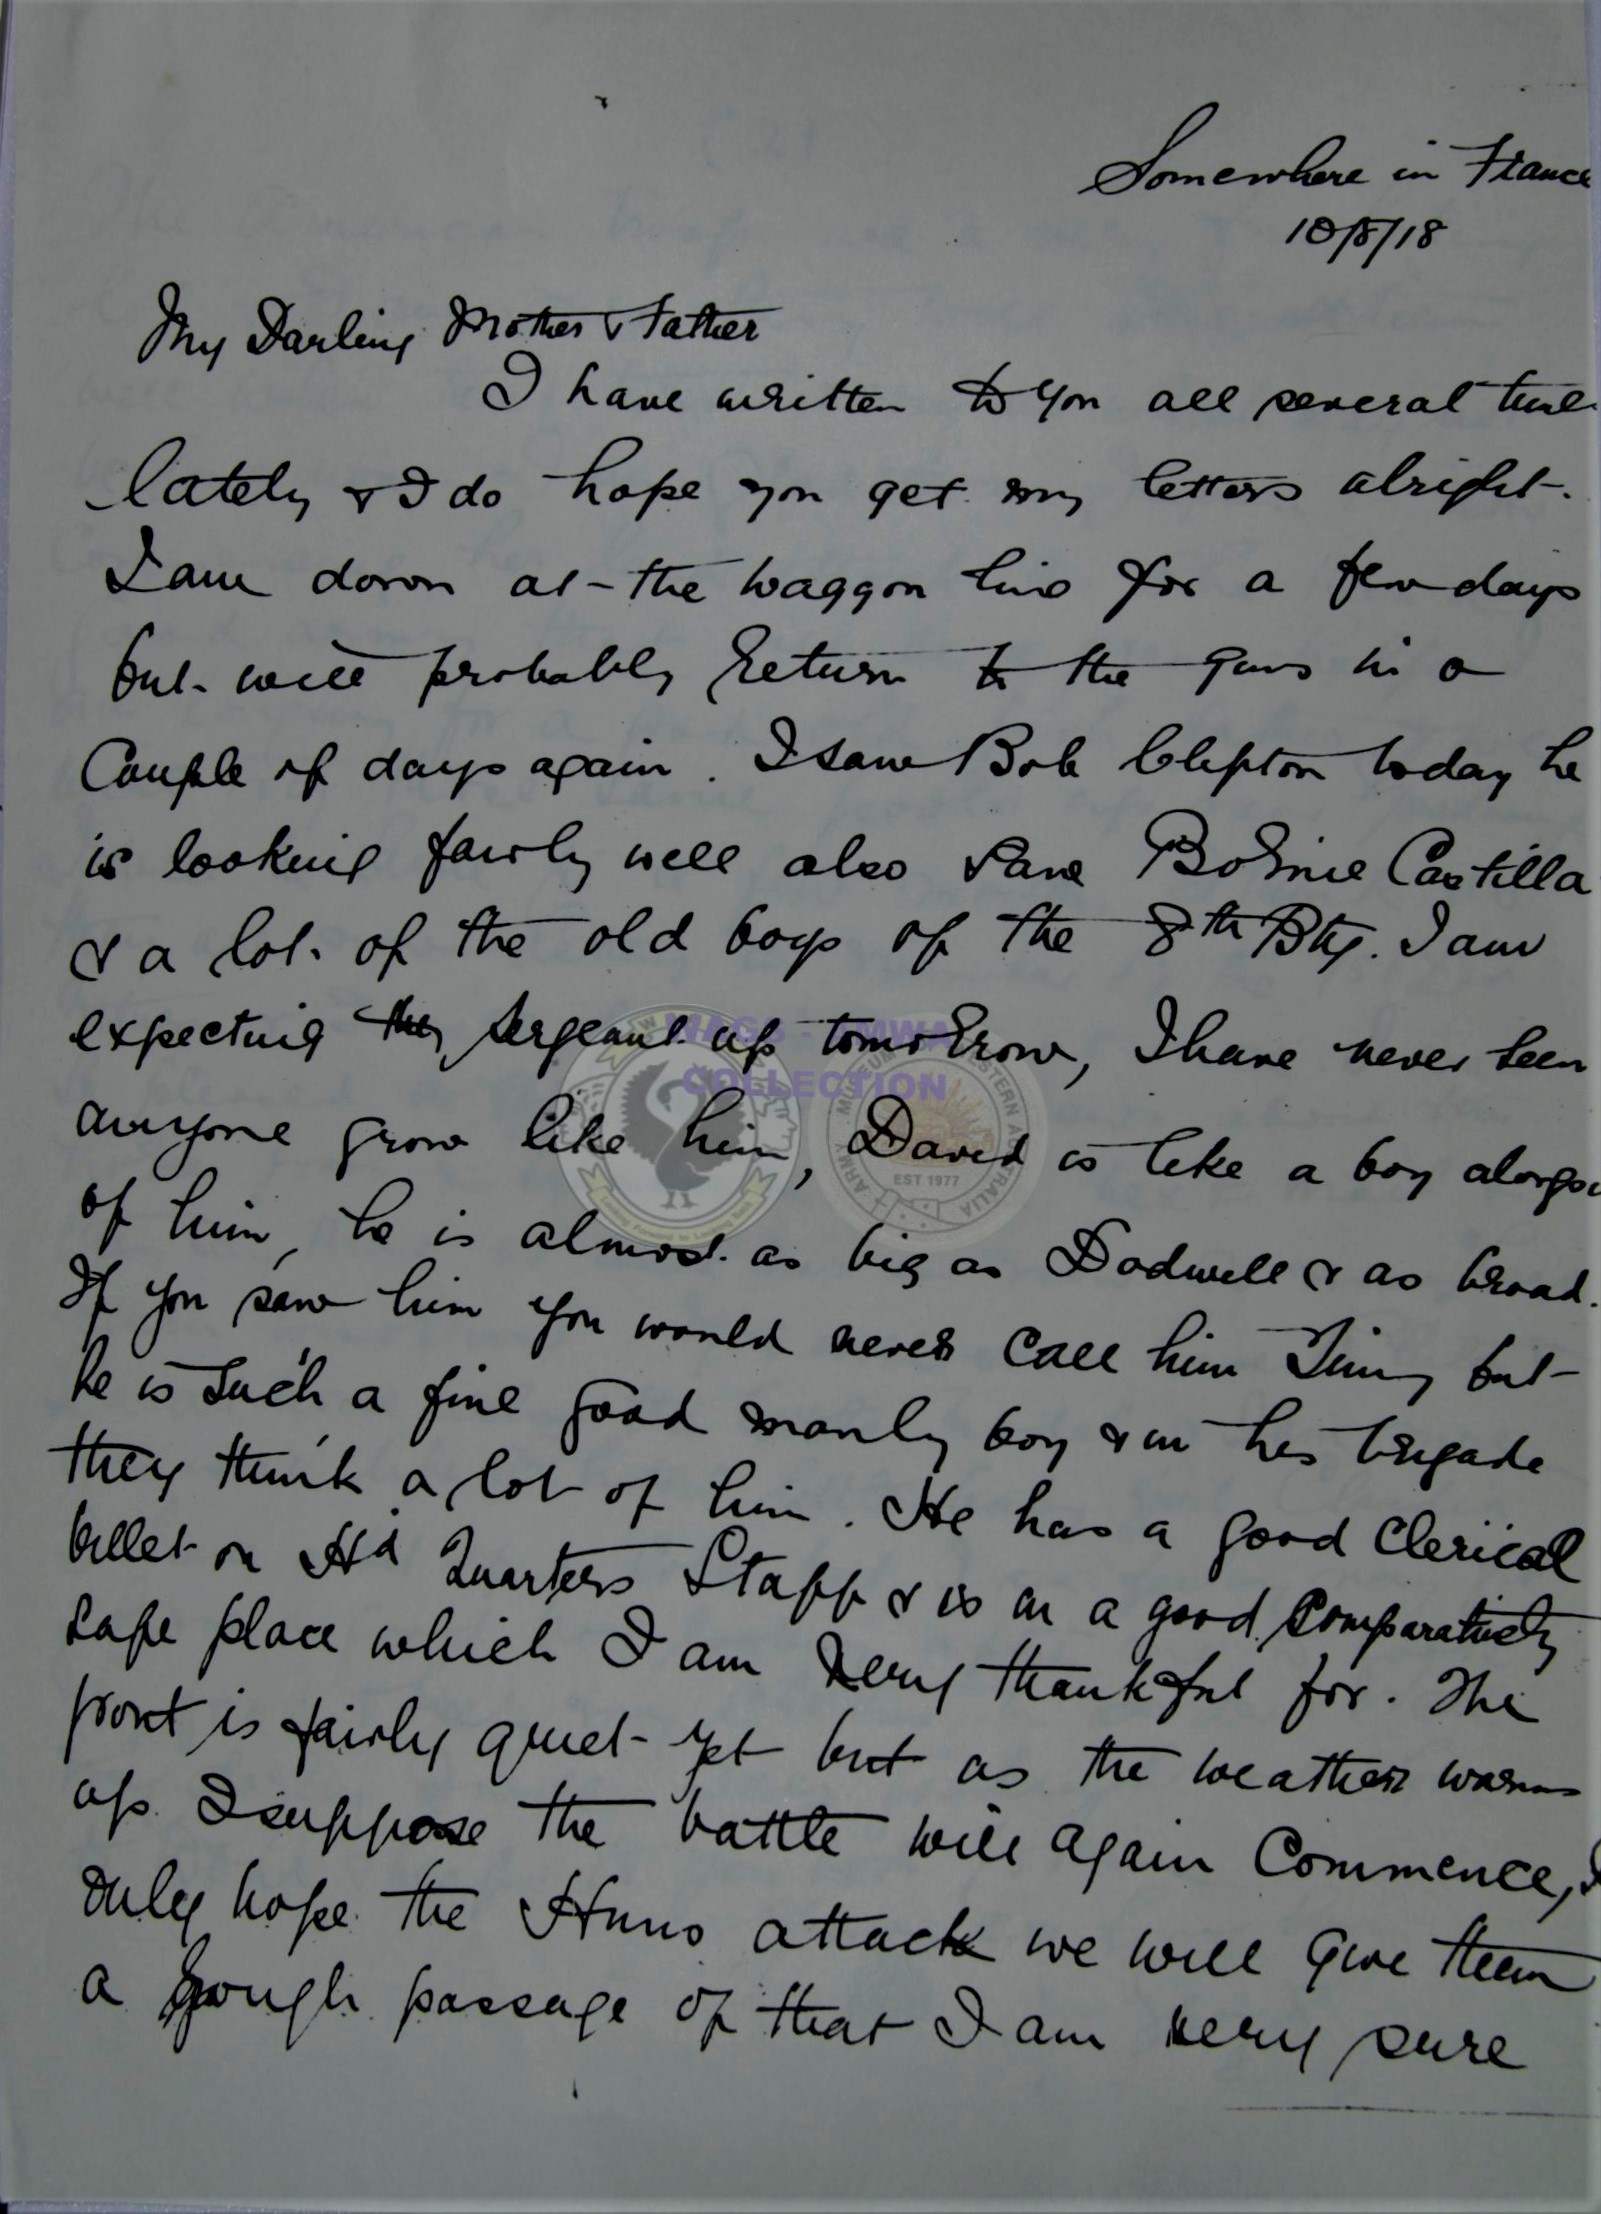 Somewhere in France
10/5/18
My Darling Mother & Father
I have written to you all several
lately & I do hope you get my letters alright.
I am down at the waggon line for a few days
but will probably return to the guns in a
Couple of days again. I saw Bob Clifton today he
is looking fairly well also saw Castilla
& a lot of the old boys of the 8th Bty. I am
expecting the Sergeant up tomorrow, I have never seen
anyone grow like him, David is like a boy
of him, he is almost as big as Dodwell & as broad.
If you saw him you would never call him Tiny but
he is such a fine good manly boy & in his brigade
they think a lot of him. He has a good Clerical
billet on Hd Quarters Staff & is in a good Comparatively
safe place which I am very thankful for. The
front is fairly quiet yet but as the weather warms
up I suppose the battle will again Commence, I
only hope the Huns attack we will give them
a rough passage of that I am very sure
MAGS - AMWA
COLLECTION
EST 1977